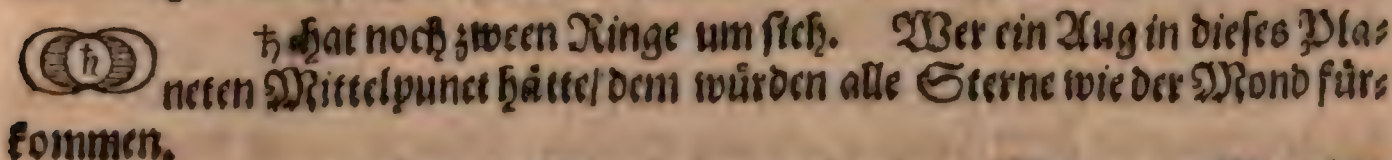 ♄ hat noch zween Ringe um sich. Wer ein Aug in dieses Pla⸗
neten Mittelpunct hätte/ dem würden alle Sterne wie der Mond für⸗
kommen.